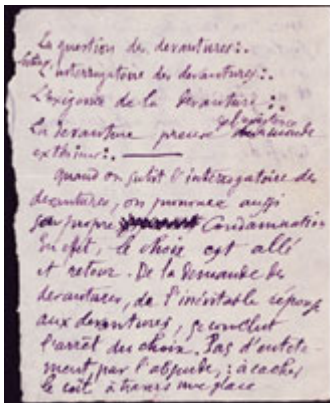 La question des devantures :.
L'interrogatoire des devantures :.
L'exigence de la devanture :.
La devanture preuve de l'existence du monde
extérieur :.
Quand on subit l'interrogatoire des
devantures, on prononce aussi
sa propre Condamnation
En effet, le choix est allé
et retour. De la demande des
devantures, de l'inévitable réponse
aux devantures, se conclut
l'arrêt du choix. Pas d'entête-
ment, par l'absurde, : à cacher
le coït à travers une glace